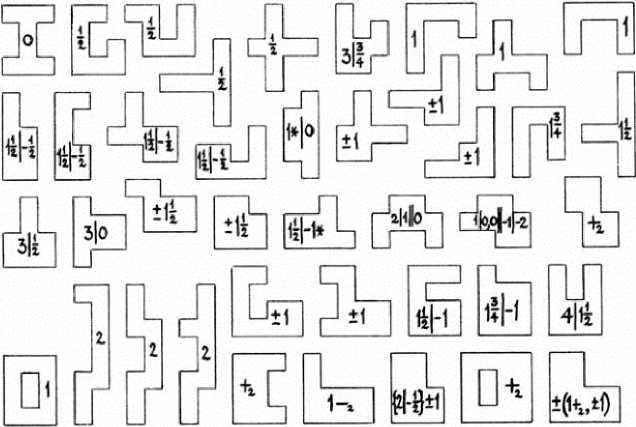 0 1/2 1/2 1/2 1/2 3|3/4 1 1 1
1 1/2|-1/2 1 1/2|-1/2 1 1/2|-1/2 1 1/2|-1/2 1*|0 ±1 ±1 ±1 1 3/4 1 1/2
3|1/2 3|0 ±1 1/2 ±1 1/2 1 1/2|-1* 2|1||0 1|0,0||-1|-2 +₂
2 2 2 ±1 ±1 1 1/2|-1 1 3/4|-1 4|1 1/2
1 +₂ 1-₂ {2|-1/2}±1 +₂ ±(1+₂,±1)